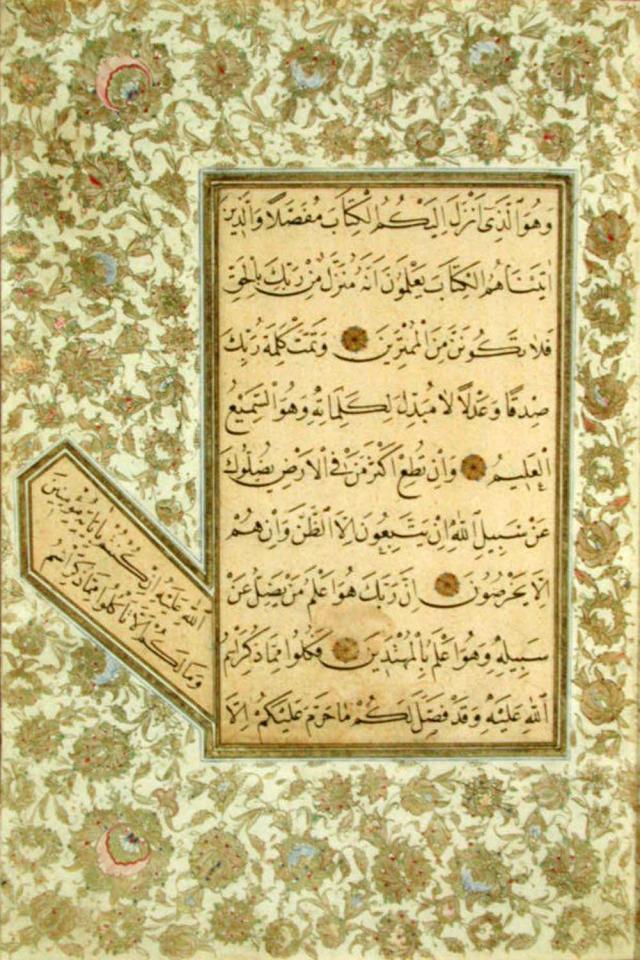 وَهُوَ الَّذِى اَنْزَلَ اِلَيْكُمُ الْكِتَابَ مُفَصَّلاً وَالَّذِينَ
اٰتَيْنَاهُمُ الْكِتَابَ يَعْلَمُونَ اَنَّهُ مُنَزَّلٌ مِنْ رَبِّكَ بِالْحَقِّ
فَلَا تَكُونَنَّ مِنَ الْمُمْتَرِينَ وَتَمَّتْ كَلِمَةُ رَبِّكَ
صِدْقًا وَعَدْلاً لَا مُبَدِّلَ لِكَلِمَاتِهِ وَهُوَ السَّمِيعُ
الْعَلِيمُ وَاِنْ تُطِعْ اَكْثَرَ مَنْ فِى الْاَرْضِ يُضِلُّوكَ
عَنْ سَبِيلِ اللّٰهِ اِنْ يَتَّبِعُونَ اِلَّا الظَّنَّ وَاِنْ هُمْ
اِلَّا يَخْرُصُونَ اِنَّ رَبَّكَ هُوَ اَعْلَمُ مَنْ يَضِلُّ عَنْ
سَبِيلِهِ وَهُوَ اَعْلَمُ بِالْمُهْتَدِينَ فَكُلُوا مِمَّا ذُكِرَ اسْمُ
اللّٰهِ عَلَيْهِ وَقَدْ فَصَّلَ لَكُمْ مَا حَرَّمَ عَلَيْكُمْ اِلَّا
اللّٰهِ عَلَيْهِ اِنْ كُنْتُمْ بِاٰيَاتِهِ مُؤْمِنِينَ
وَمَا لَكُمْ اَلَّا تَأْكُلُوا مِمَّا ذُكِرَ اسْمُ